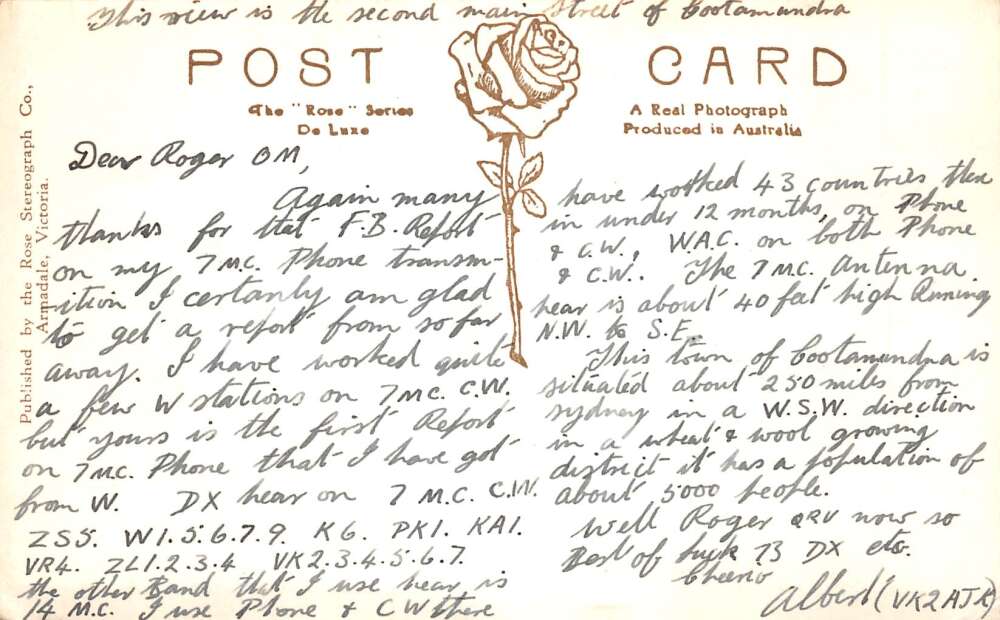 This view is the second main Street of Cootamundra
POST CARD
The "Rose" Series
De Luxe
A Real Photograph
Produced in Australia
Published by the Rose Stereograph Co.,
Armadale, Victoria.
Dear Roger OM,
Again many
thanks for that F.B. Report
on my 7 M.C. Phone transm-
ition I certanly am glad
to get a report from so far
away. I have worked quite
a few W stations on 7 M.C. C.W.
but yours is the first Report
on 7 M.C. Phone that I have got
from W. DX hear on 7 M.C. C.W.
ZS5. W1.5.6.7.9. K6. PK1. KA1.
VR4. ZL1.2.3.4 VK2.3.4.5.6.7.
the other Band that I use hear is
14 M.C. I use Phone & CW there
have worked 43 countries there
in under 12 months, on Phone
& C.W., W.A.C. on both Phone
& C.W.. The 7 M.C. Antenna.
hear is about 40 feet high Runing
N.W. to S.E.
This town of Cootamundra is
situated about 250 miles from
sydney in a W.S.W. direction
in a wheat & wool growing
district it has a population of
about 5000 people.
Well Roger QRV now so
Best of luck 73 DX etc.
Cheerio
Albert (VK2AJK)